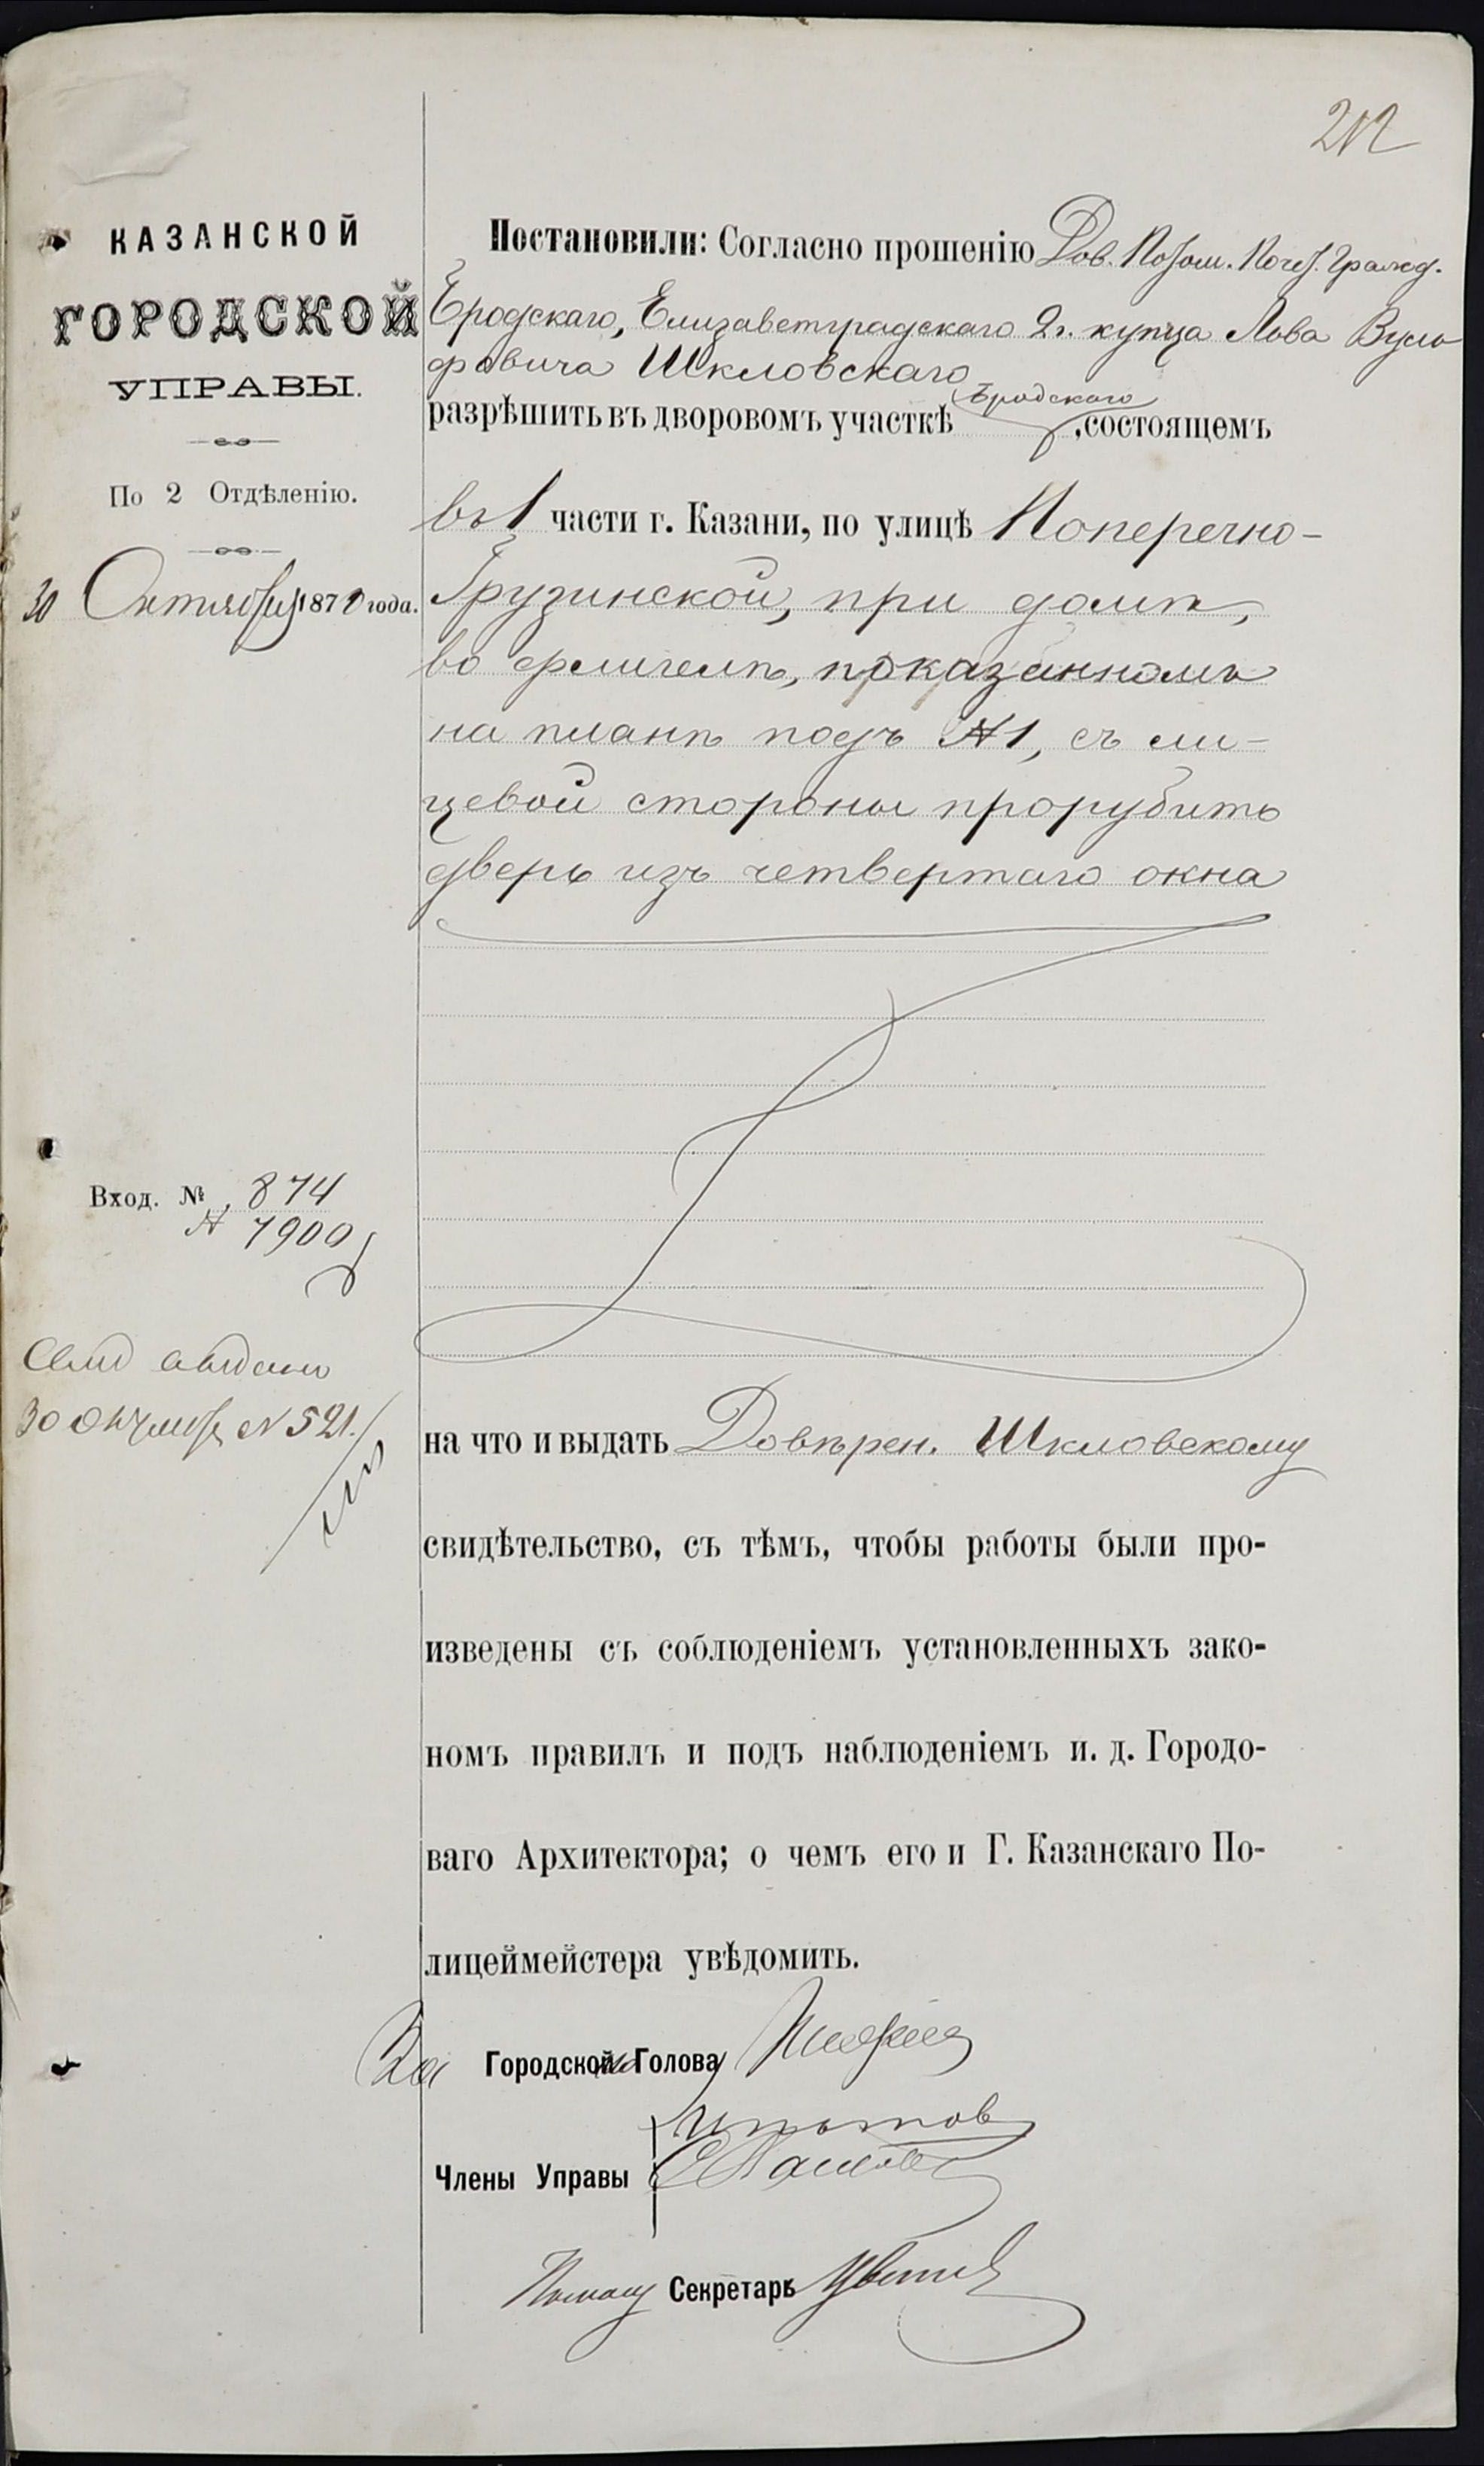 212
КАЗАНСКОЙ
ГОРОДСКОЙ
УПРАВЫ.
По 2 Отдѣленію.
30 Октября 187 года.
Постановили: Согласно прошенію Дов. Потом. Почет. Гражд.
Бродскаго, Елизаветградскаго 2 г. купца Лова Вуль
фовича Шкловскаго
Бродскаго
разрѣшить въ дворовомъ участкѣ , состоящемъ
въ 1 части г. Казани, по улицѣ Поперечно-
Грузинской, при домѣ,
во флигелѣ, показанномъ
на планѣ подъ №1, съ ли-
цевой стороны прорубить
дверь изъ четвертаго окна
Вход. № 874
№ 7900
Свид выдано
30 Октября № 521.
на что и выдать Довѣрен. Шкловскому
свидѣтельство, съ тѣмъ, чтобы работы были про-
изведены съ соблюденіемъ установленныхъ зако-
номъ правилъ и подъ наблюденіемъ и. д. Городо-
ваго Архитектора; о чемъ его и Г. Казанскаго По-
лицеймейстера увѣдомить.
За Городской Голова
Члены Управы
Помощ Секретарь